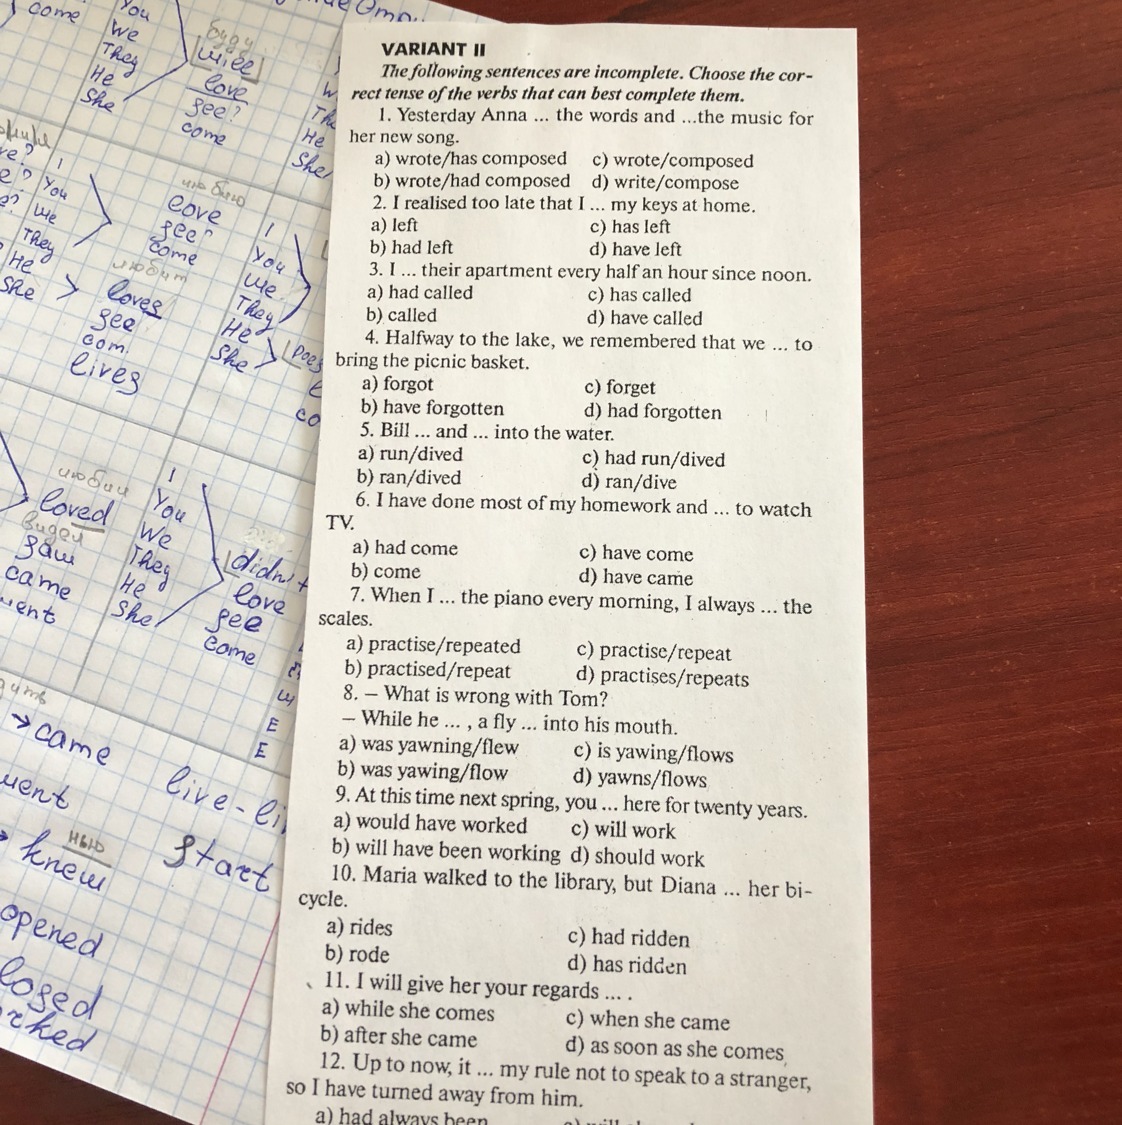 come
You
We
They
He
She
буду
will
love
see?
come
He
She
I
You
We
They
He
She
love
see?
come
любит
loves
see
com.
lives
I
You
We
They
He
She
loved
видел
saw
came
I
You
We
They
He
She
didn't
love
see
come
→ came
live - li
knew
start
opened
VARIANT II
The following sentences are incomplete. Choose the cor-
rect tense of the verbs that can best complete them.
1. Yesterday Anna ... the words and ...the music for
her new song.
a) wrote/has composed c) wrote/composed
b) wrote/had composed d) write/compose
2. I realised too late that I ... my keys at home.
a) left c) has left
b) had left d) have left
3. I ... their apartment every half an hour since noon.
a) had called c) has called
b) called d) have called
4. Halfway to the lake, we remembered that we ... to
bring the picnic basket.
a) forgot c) forget
b) have forgotten d) had forgotten
5. Bill ... and ... into the water.
a) run/dived c) had run/dived
b) ran/dived d) ran/dive
6. I have done most of my homework and ... to watch
TV.
a) had come c) have come
b) come d) have came
7. When I ... the piano every morning, I always ... the
scales.
a) practise/repeated c) practise/repeat
b) practised/repeat d) practises/repeats
8. – What is wrong with Tom?
– While he ... , a fly ... into his mouth.
a) was yawning/flew c) is yawing/flows
b) was yawing/flow d) yawns/flows
9. At this time next spring, you ... here for twenty years.
a) would have worked c) will work
b) will have been working d) should work
10. Maria walked to the library, but Diana ... her bi-
cycle.
a) rides c) had ridden
b) rode d) has ridden
11. I will give her your regards ... .
a) while she comes c) when she came
b) after she came d) as soon as she comes
12. Up to now, it ... my rule not to speak to a stranger,
so I have turned away from him.
a) had always been